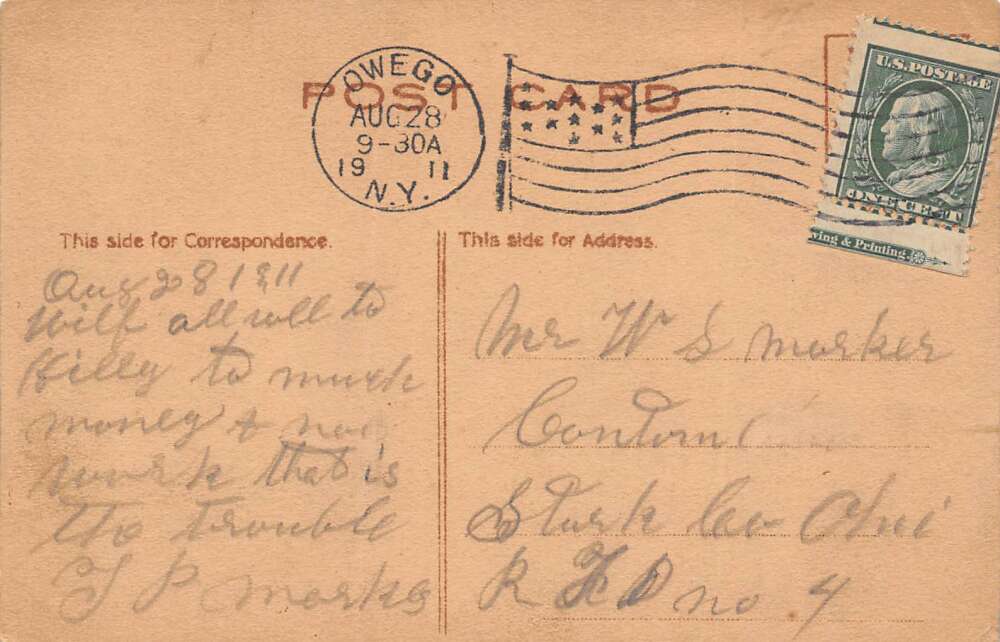 POST CARD
OWEGO
AUG 28
9-30A
19 11
N.Y.
U.S. POSTAGE
ONE CENT
ving & Printing.
This side for Correspondence.
Aug 28 1911
Will all well to
Hilly to much
money & no
work that is
the trouble
This side for Address.
Mr W S Marker
Canton
Stark Co Ohi
R F D no 4